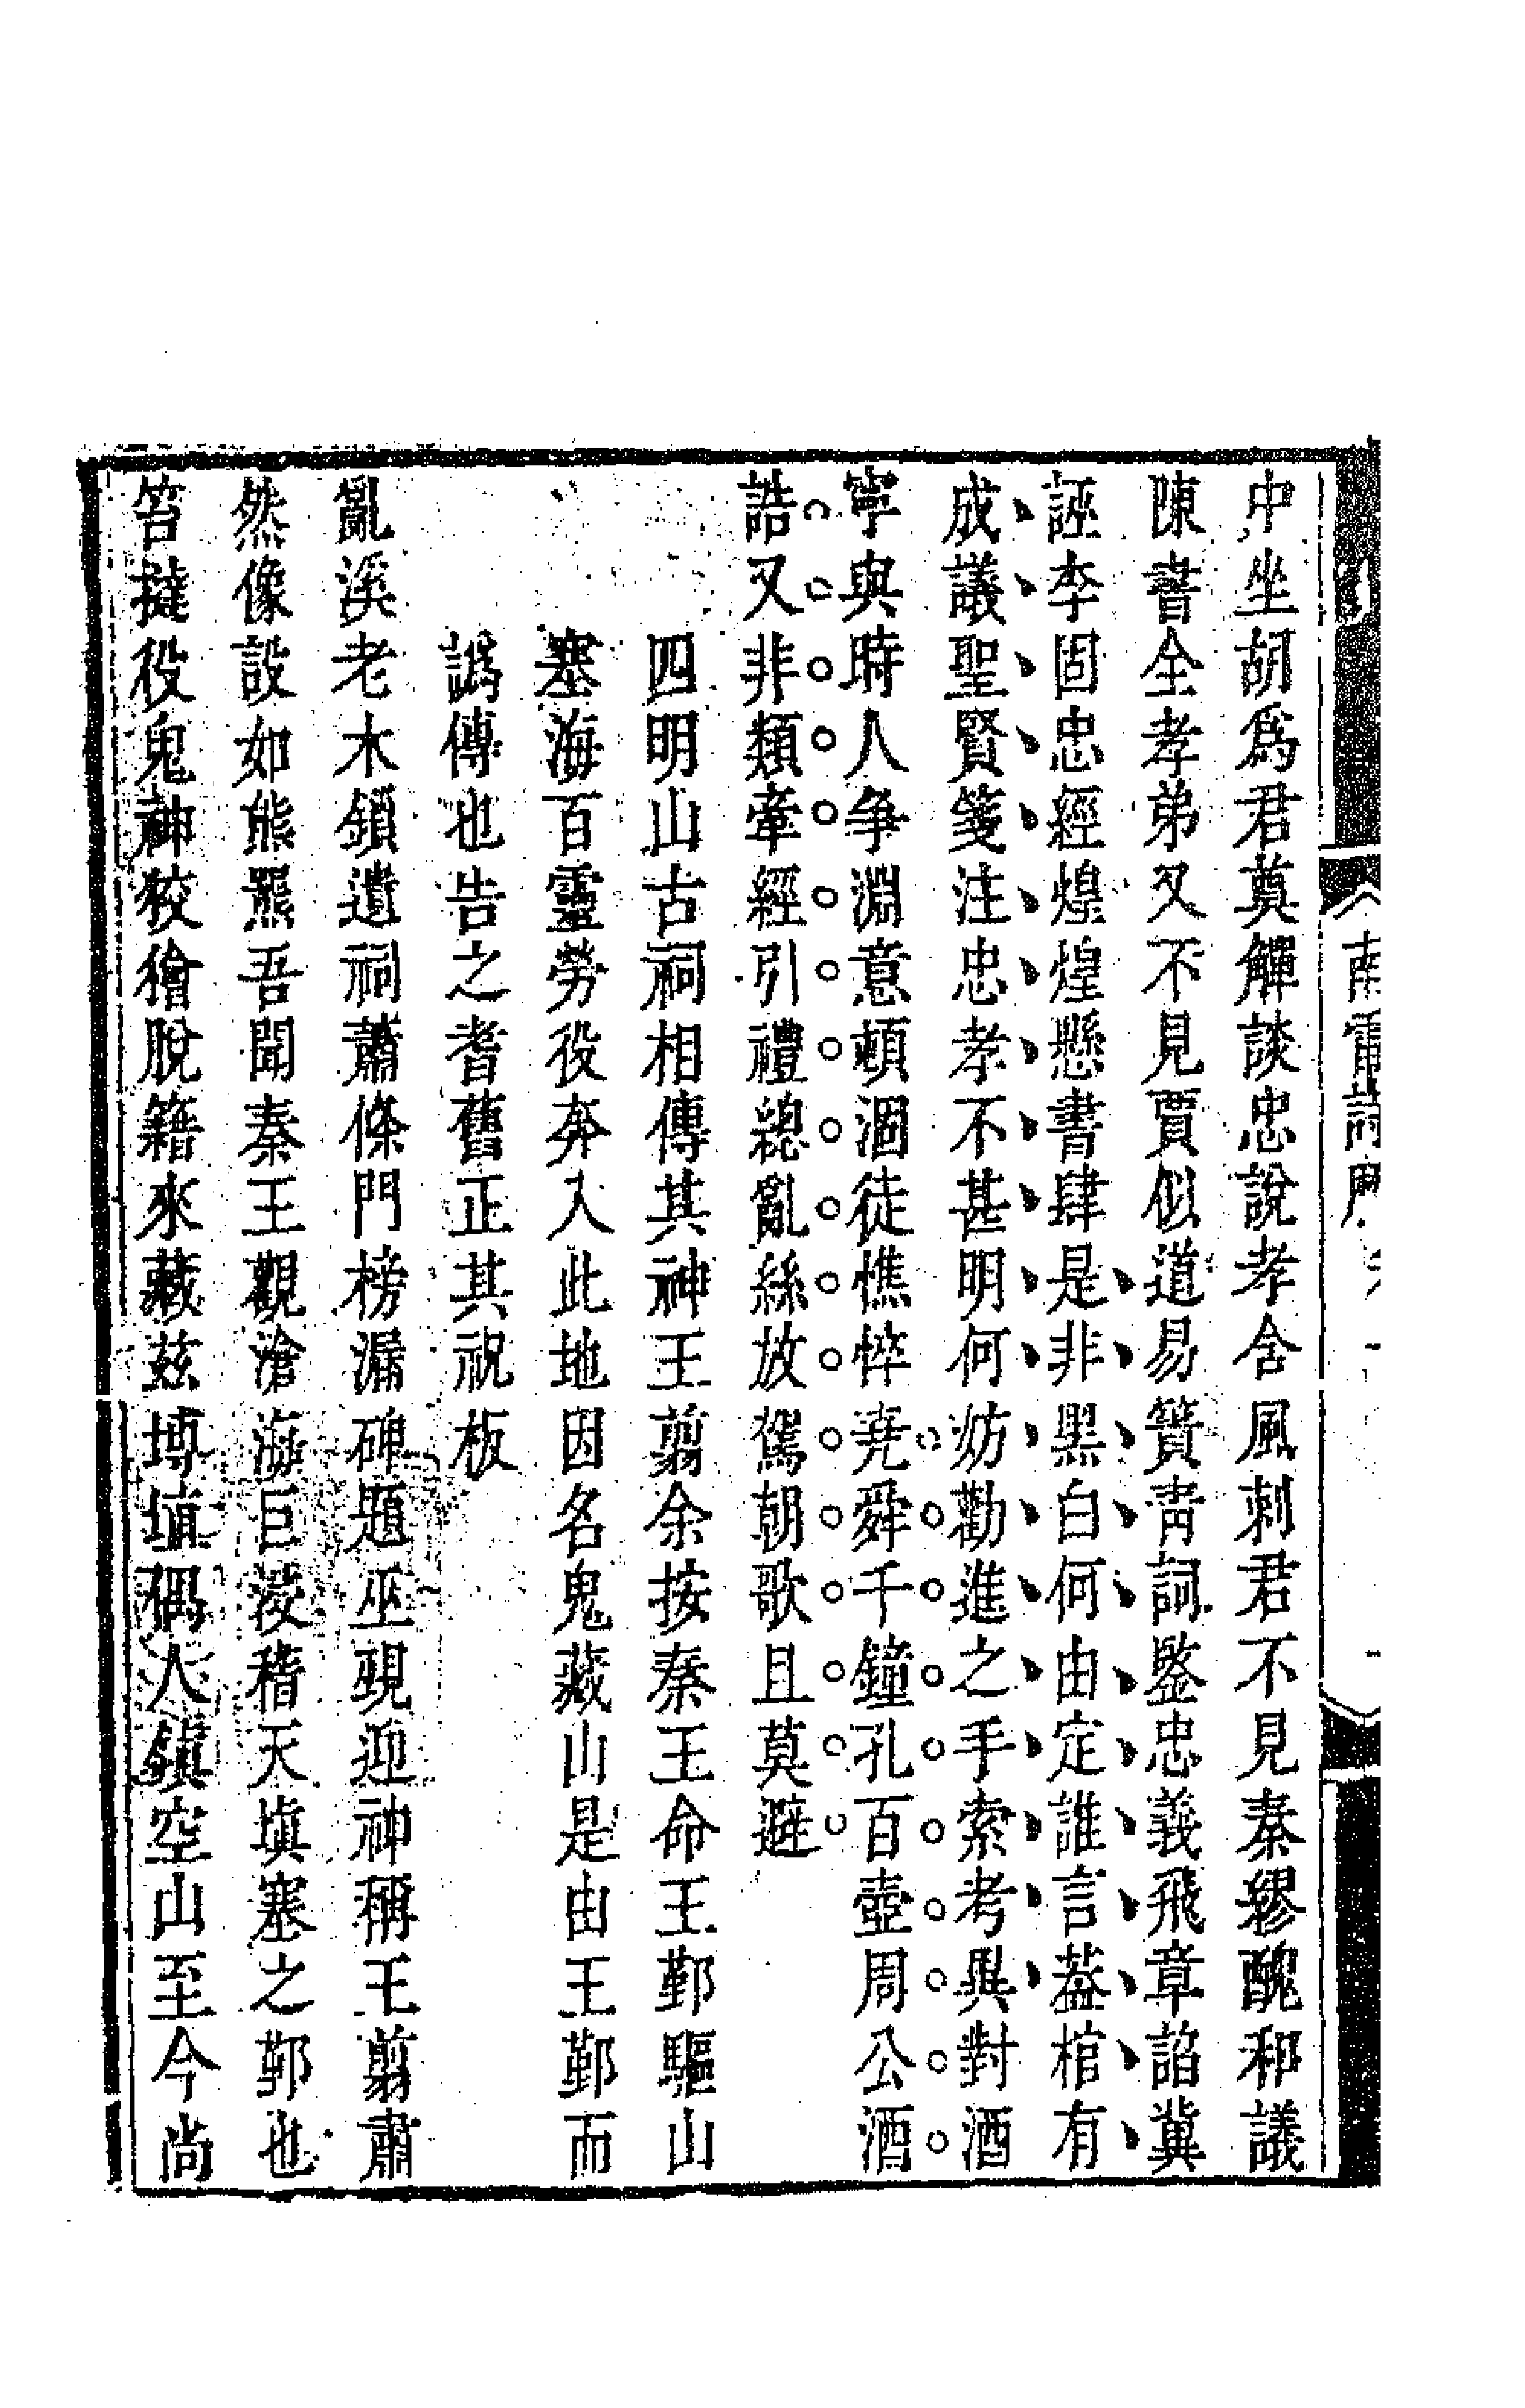 中坐胡爲君莫觶談忠說孝含風刺君不見秦繆醜和議
陳書全孝弟又不見賈似道易簀靑詞鑒忠義飛章諂冀
誣李固忠經煌煌懸書肆是非黑白何由定誰言葢棺有
成議聖賢箋注忠孝不甚明何妨勸進之手索考異對酒
寧與時人争淵意頓涸徒憔悴尭舜千鐘孔百壺周公酒
誥又非類牽經引禮緫亂絲放駕朝歌且莫避
四明山古祠相傳其神王翦余按秦王命王鄞驅山
塞海百靈勞役奔入此地因名鬼藏山是由王鄞而
譌傳也告之耆舊正其祝板
亂溪老木鎖遺祠蕭條門榜漏碑題巫覡迎神稱王翦肅
然像設如熊羆吾聞秦王觀滄海巨浸稽天塡塞之鄞也
笞撻役鬼神狡獪脫籍來藏茲塼埴偶人鎭空山至今尚
南雷詩曆